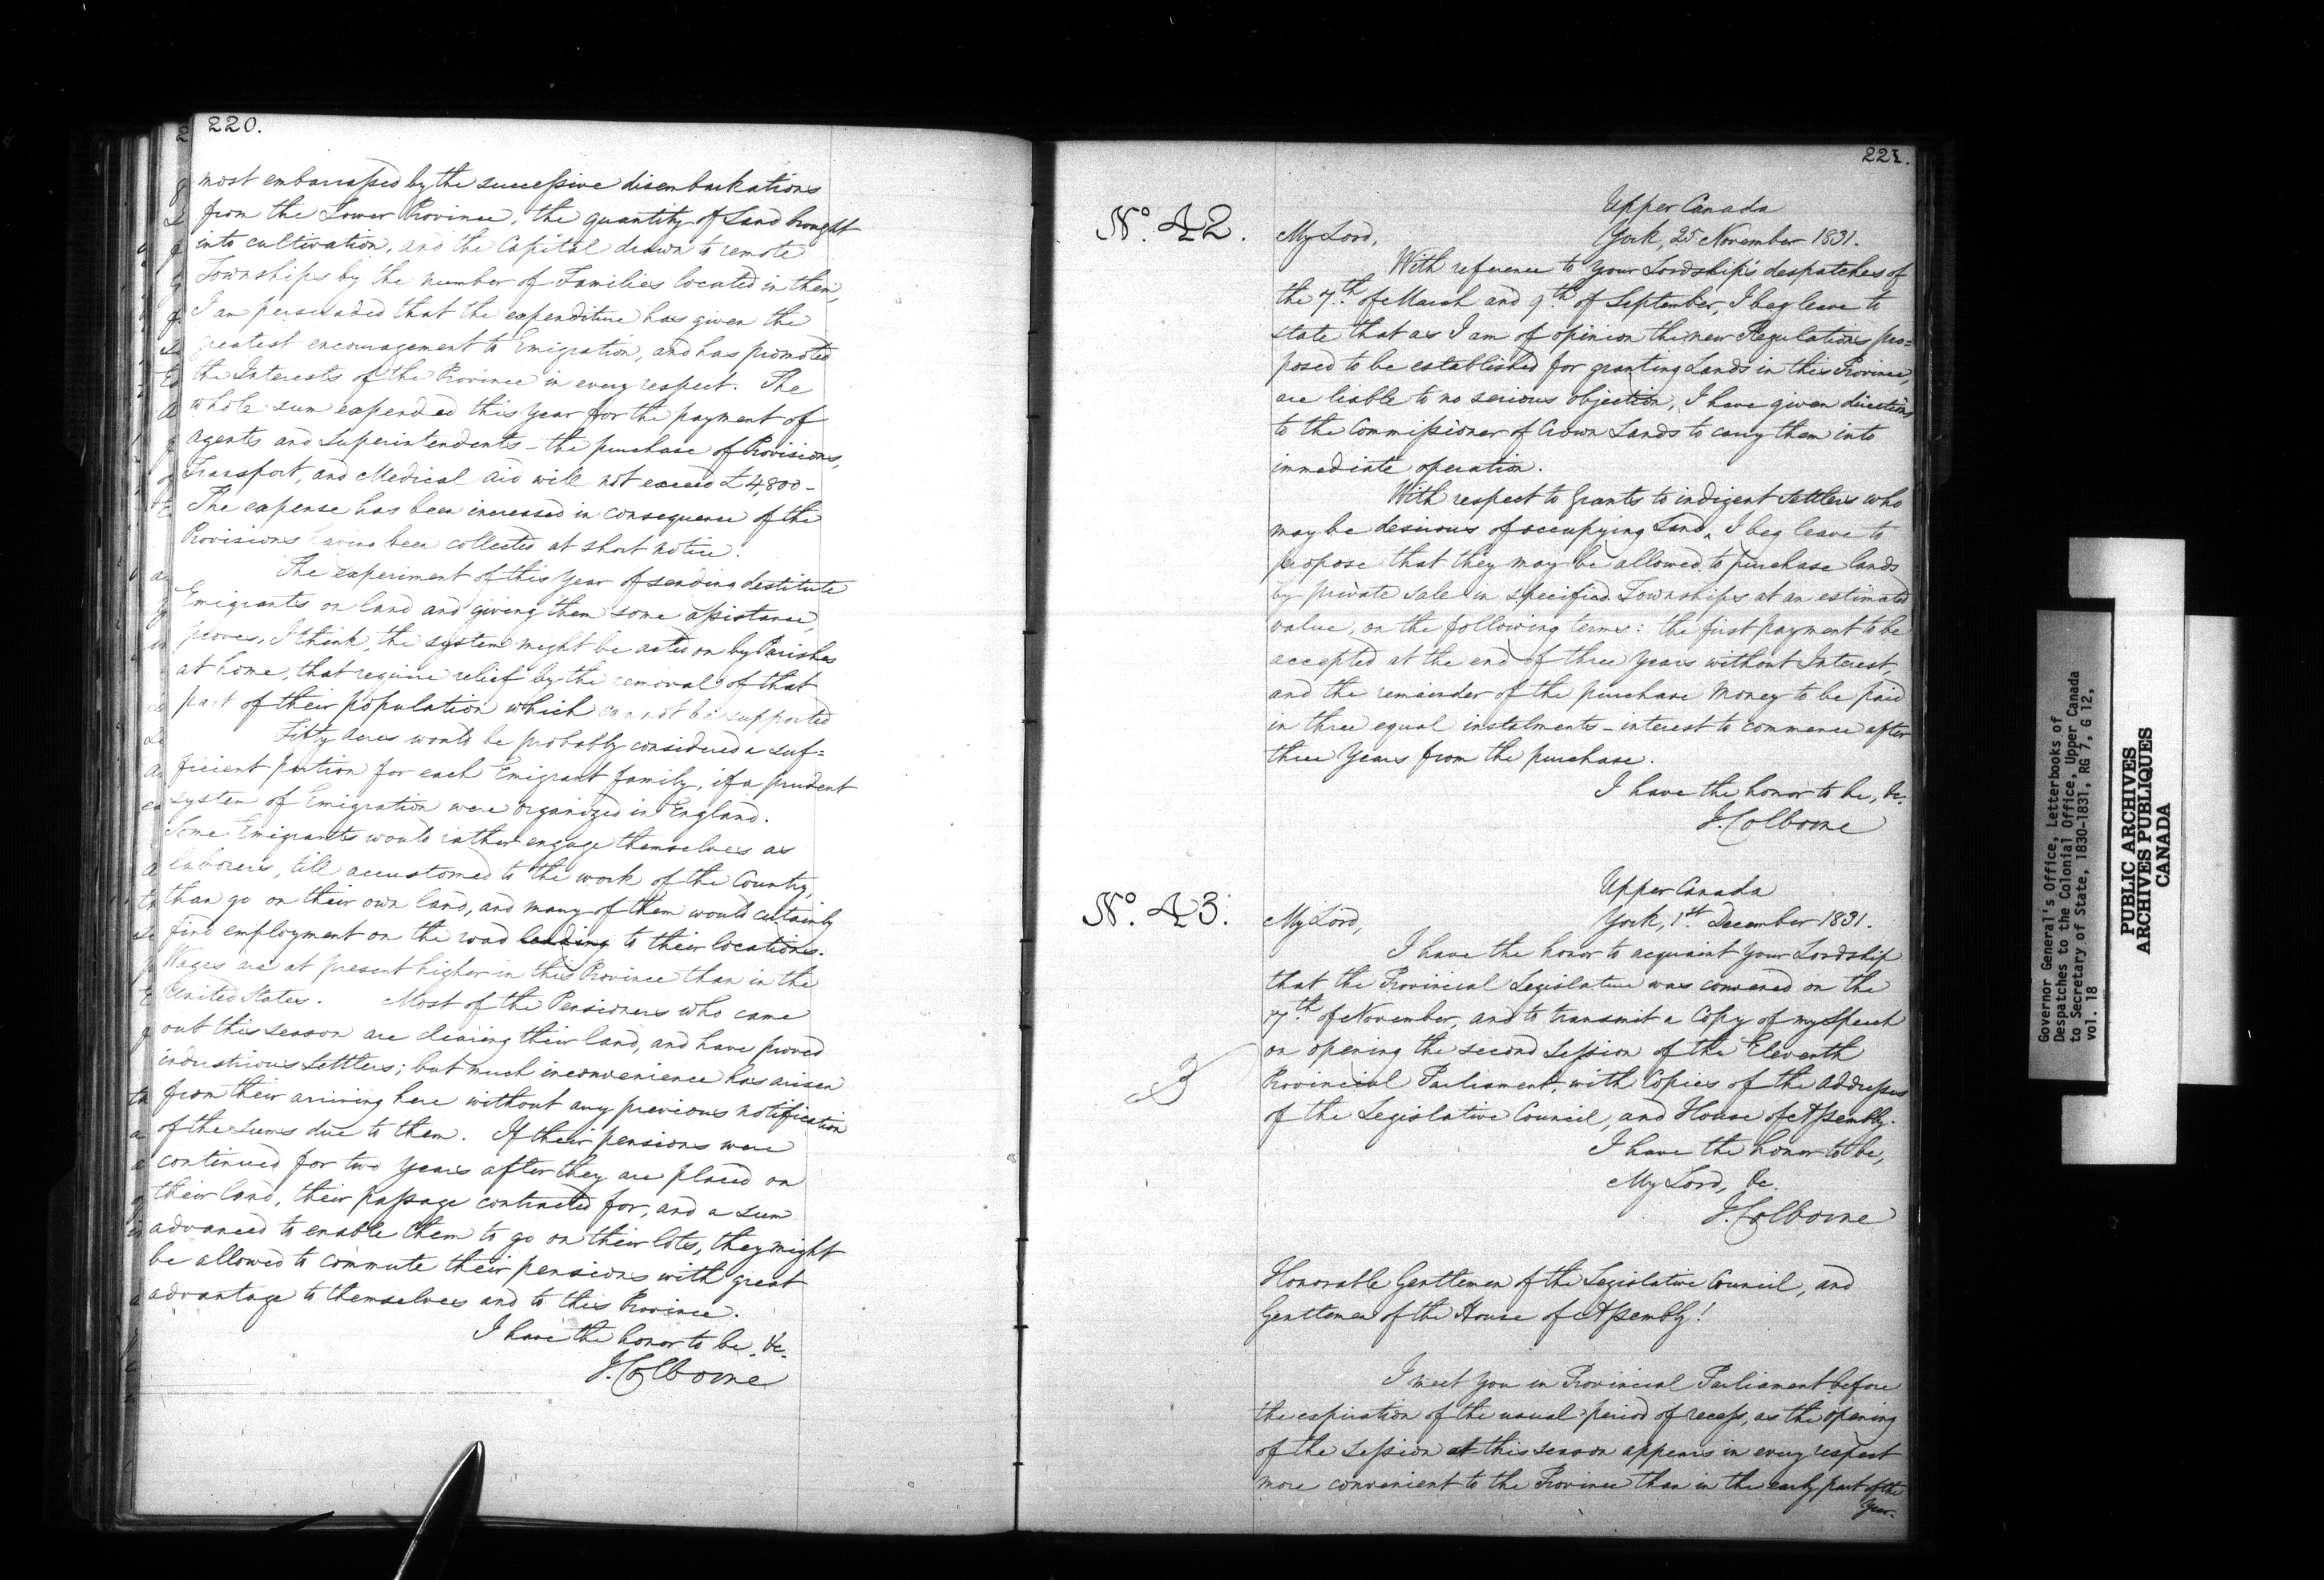 220.
most embarrassed by the successive disembarkations
from the Lower Province, the quantity of Land brought
into cultivation, and the Capital drawn to remote
Townships by the number of Families located in them,
I am persuaded that the expenditure has given the
greatest encouragement to Emigration, and has promoted
the Interests of the Province in every respect. The
whole sum expended this year for the payment of
Agents and Superintendents - the purchase of Provisions,
Transport, and Medical aid will not exceed £4,800 -
The expense has been increased in consequence of the
Provisions having been collected at short notice.
The experiment of this year of sending destitute
Emigrants on land and giving them some assistance,
proves, I think, the system might be acted on by Parishes
at home, that require relief by the removal of that
part of their population which cannot be supported
Fifty Acres would be probably considered a suf=
ficient portion for each Emigrant family, if a prudent
system of Emigration were organized in England.
Some Emigrants would rather engage themselves as
laborers, till accustomed to the work of the Country,
than go on their own land, and many of them would certainly
find employment on the road leading to their locations.
Wages are at present higher in this Province than in the
United States. Most of the Pensioners who came
out this season are clearing their land, and have proved
industrious Settlers; but much inconvenience has arisen
from their arriving here without any previous notification
of the sums due to them. If their pensions were
continued for two years after they are placed on
their land, their passage contracted for, and a sum
advanced to enable them to go on their lots, they might
be allowed to commute their pensions with great
advantage to themselves and to this Province.
I have the honor to be, &c.
J. Colborne
221.
Upper Canada
No. 42. My Lord, York, 25 November 1831.
With reference to Your Lordship's despatches of
the 7th of March and 9th of September, I beg leave to
state that as I am of opinion the new Regulations pro=
posed to be established for granting Lands in this Province,
are liable to no serious objection, I have given directions
to the Commissioner of Crown Lands to carry them into
immediate operation.
With respect to Grants to indigent Settlers who
may be desirous of occupying Land, I beg leave to
propose that they may be allowed to purchase lands
by private sale in specified Townships at an estimated
value, on the following terms: the first payment to be
accepted at the end of three years without Interest,
and the remainder of the purchase Money to be paid
in three equal instalments - interest to commence after
three years from the purchase.
I have the honor to be, &c.
J. Colborne
Upper Canada
No. 43. My Lord, York, 1st December 1831.
I have the honor to acquaint Your Lordship
that the Provincial Legislature was convened on the
17th of November, and to transmit a Copy of my Speech
on opening the second Session of the Eleventh
3 Provincial Parliament, with Copies of the addresses
of the Legislative Council, and House of Assembly.
I have the honor to be,
My Lord, &c.
J. Colborne
Honorable Gentlemen of the Legislative Council, and
Gentlemen of the House of Assembly!
I meet you in Provincial Parliament before
the expiration of the usual period of recess, as the opening
of the Session at this season appears in every respect
more convenient to the Province than in the early part of the
year.
Governor General's Office, Letterbooks of
Despatches to the Colonial Office, Upper Canada
to Secretary of State, 18830-1831, RG 7, G 12,
vol. 18
PUBLIC ARCHIVES
ARCHIVES PUBLIQUES
CANADA